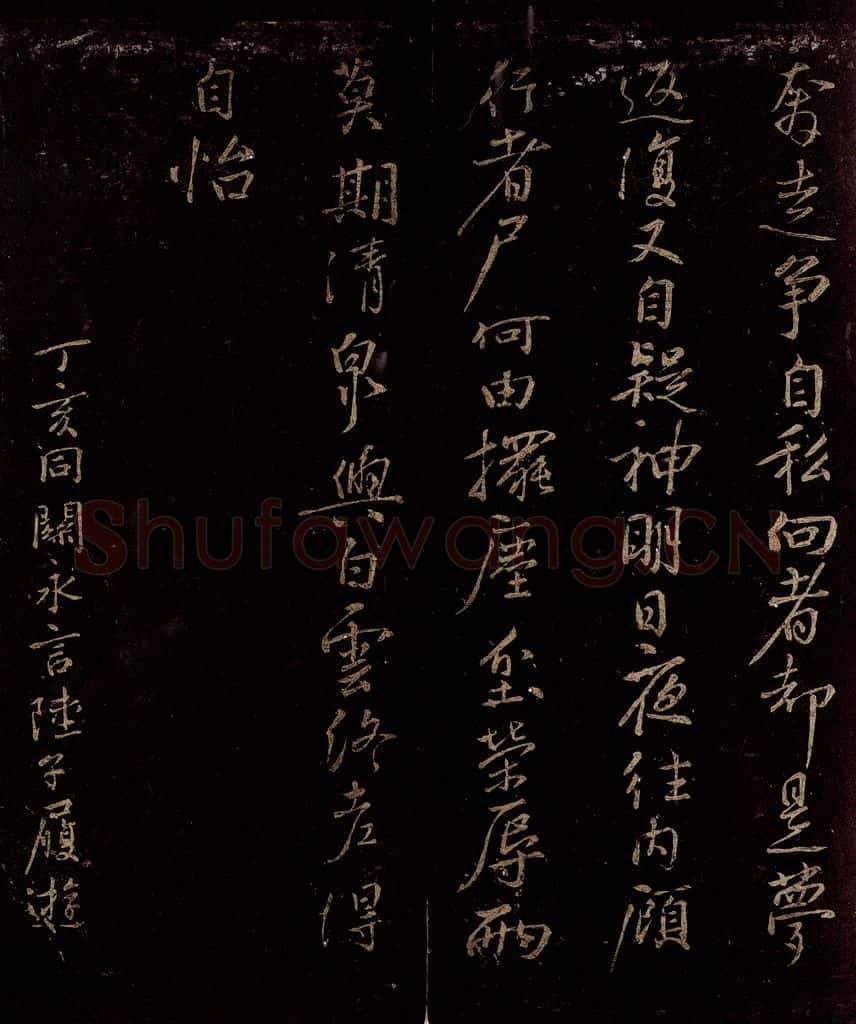 奔走争自私向者却是夢
返復又自疑神明日夜往内顧
行者尸何由擺塵坌榮辱兩
莫期清泉與白雲終老得
自怡
丁亥同關永言陸子履遊
Shufawang.CN